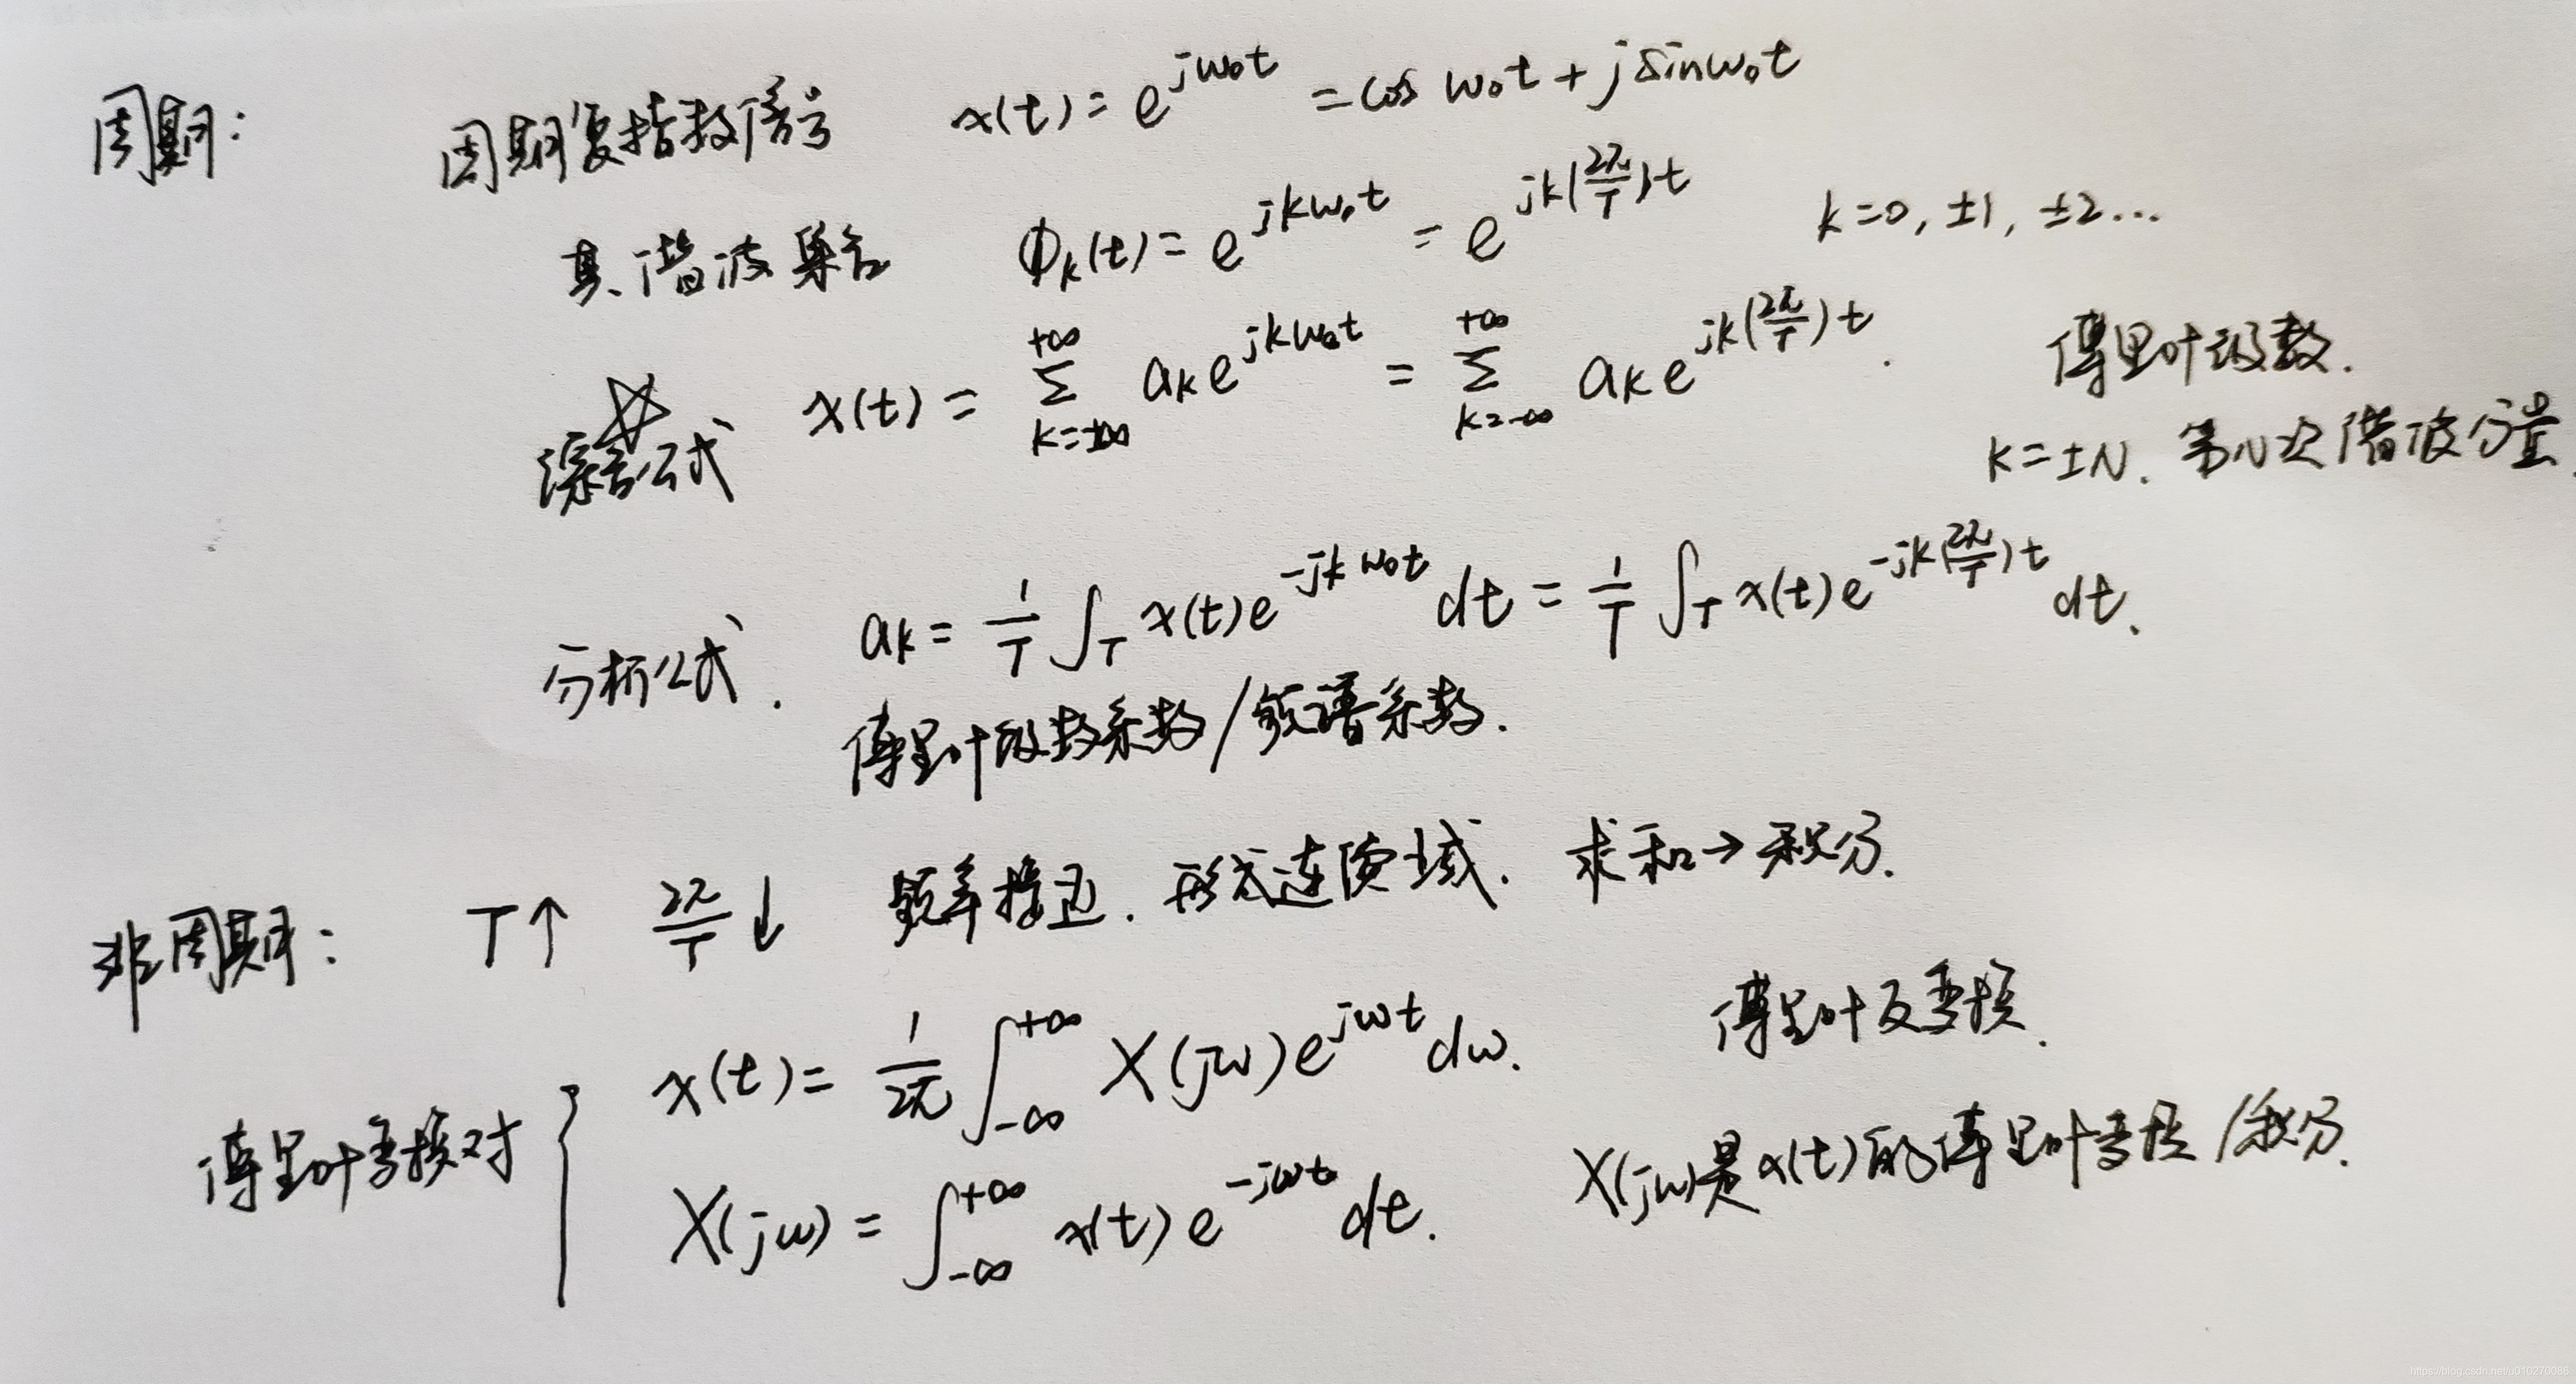 周期: 周期复指数信号 x(t) = e^{jω₀t} = cos ω₀t + j sin ω₀t
其谐波集合 Φₖ(t) = e^{jkω₀t} = e^{jk(2π/T)t} k=0, ±1, ±2...
☆
综合公式 x(t) = Σ_{k=-∞}^{+∞} aₖe^{jkω₀t} = Σ_{k=-∞}^{+∞} aₖe^{jk(2π/T)t}. 傅里叶级数.
k=±N. 第N次谐波分量.
分析公式. aₖ = 1/T ∫_T x(t)e^{-jkω₀t}dt = 1/T ∫_T x(t)e^{-jk(2π/T)t}dt.
傅里叶级数系数/频谱系数.
非周期: T↑ 2π/T↓ 频率接近. 形式连续域. 求和→积分.
傅里叶变换对 { x(t) = 1/2π ∫_{-∞}^{+∞} X(jω)e^{jωt}dω. 傅里叶反变换.
X(jω) = ∫_{-∞}^{+∞} x(t)e^{-jωt}dt. X(jω)是x(t)的傅里叶变换/积分.
https://blog.csdn.net/u010270086